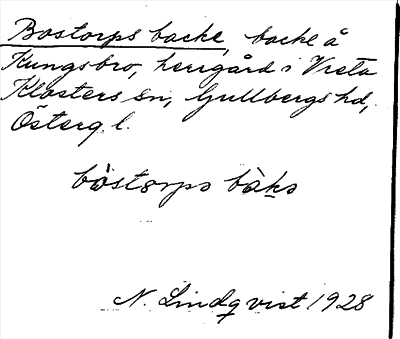 Bostorps backe, backe å
Kungsbro, herrgård i Vreta
Klosters sn, Gullbergs hd,
Österg. l.
bòstorps bàkə
N. Lindqvist 1928